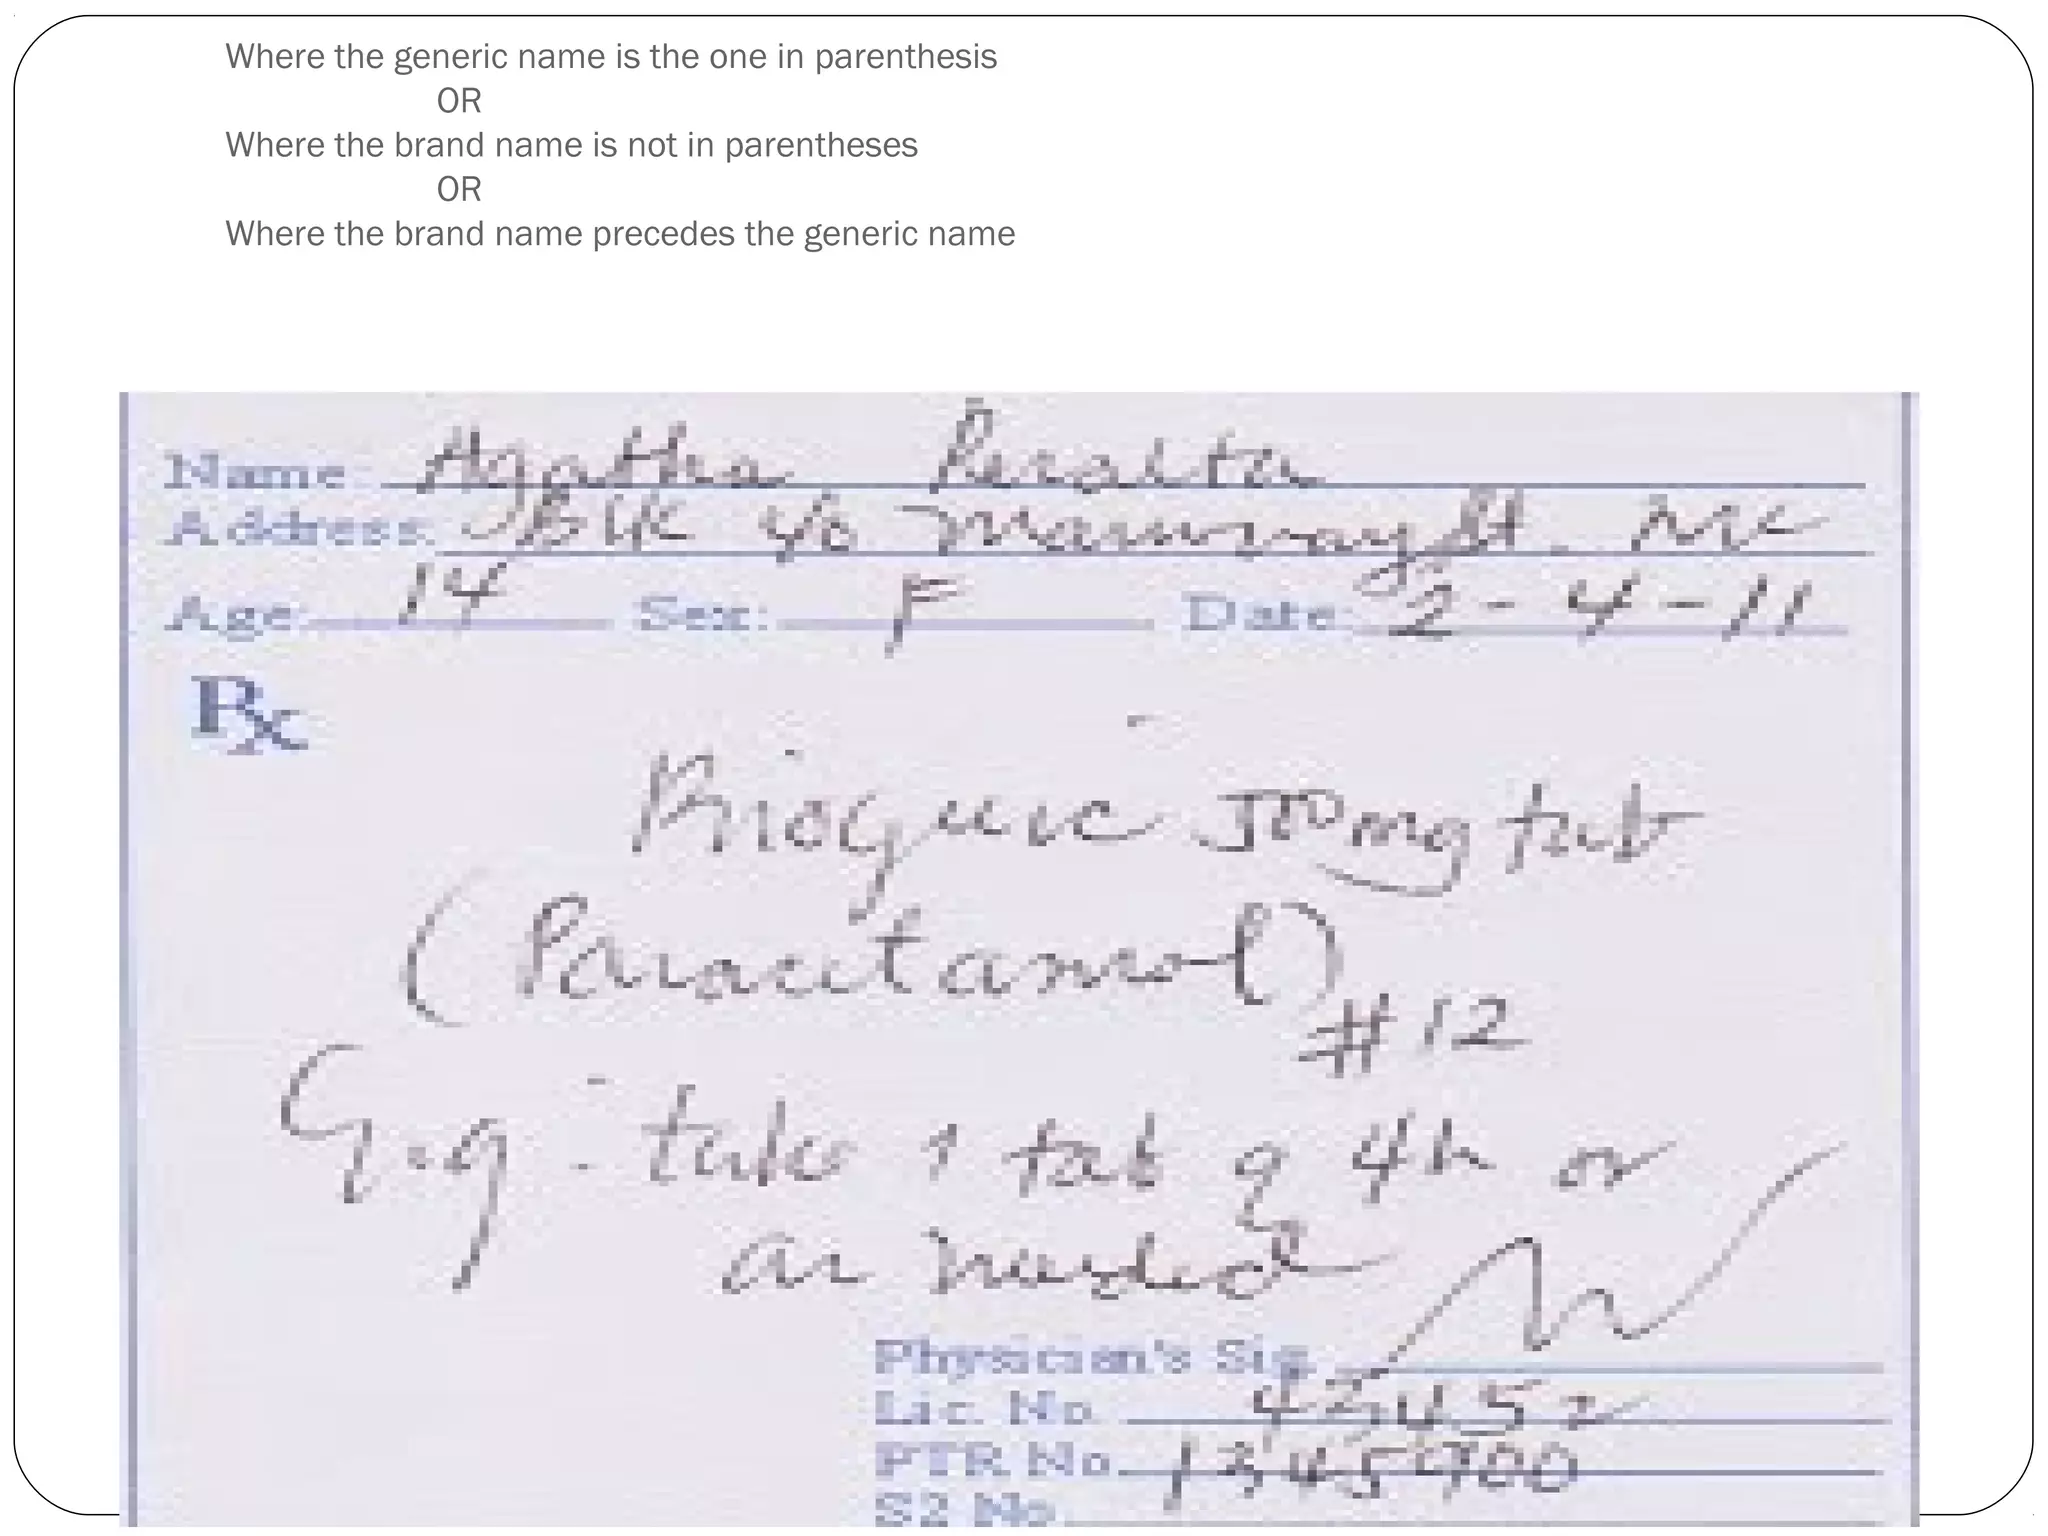 Where the generic name is the one in parenthesis
OR
Where the brand name is not in parentheses
OR
Where the brand name precedes the generic name
Name: Agatha Peralta
Address: BLK St.
Age: 14 Sex: F Date: 2-4-11
Rx
Biogesic 500mg tab
(Paracetamol)
#12
Sig - take 1 tab q 4h or
as needed
Physician's Sig
Lic. No. 43452
PTR No. 1345700
S2 No.